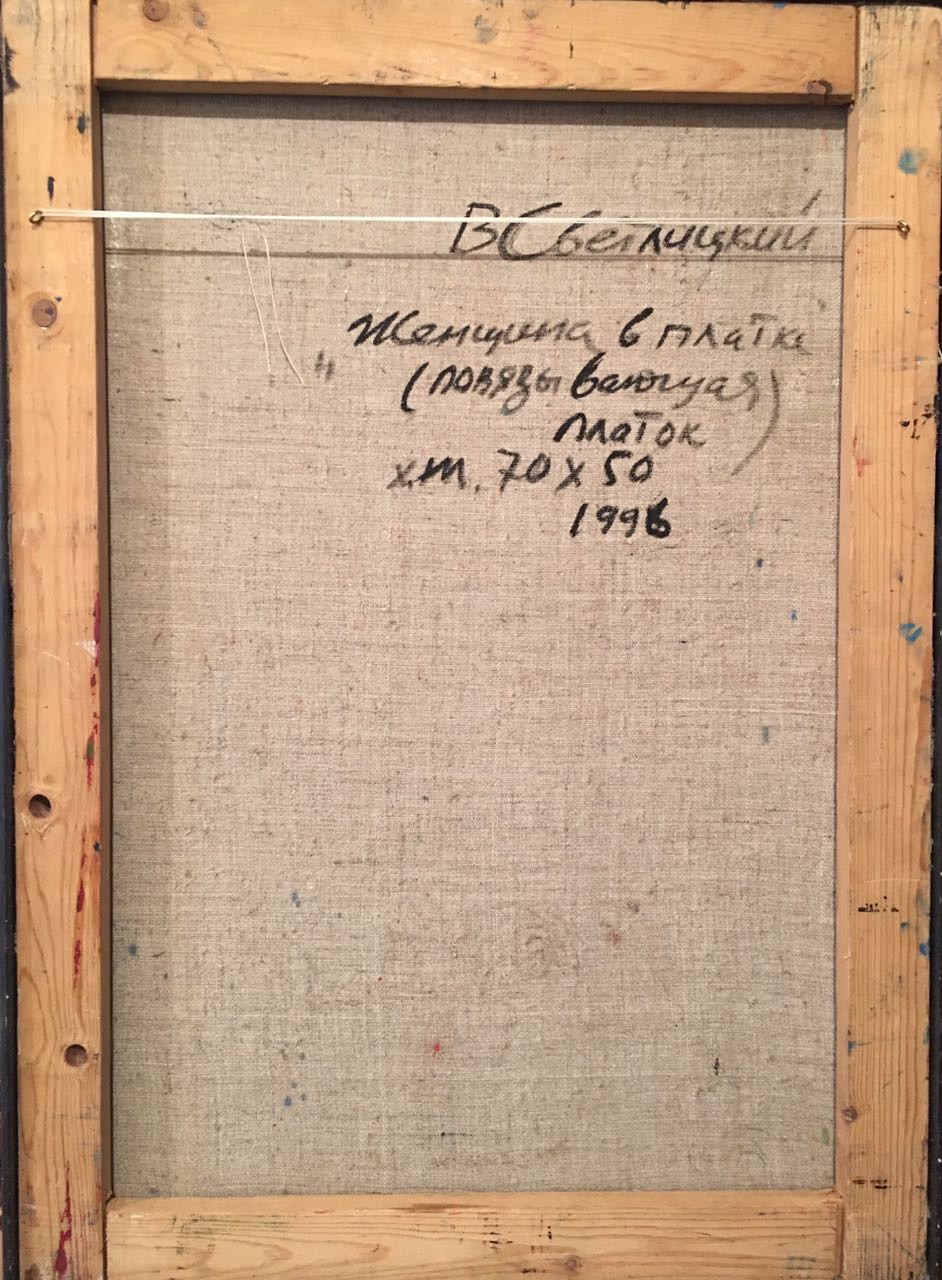 В Светлицкий
"Женщина в платке
(повязывающая)
платок
х.т. 70 х 50
1996